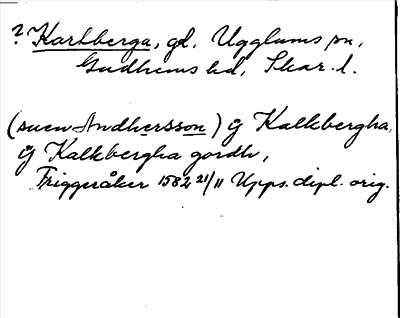 ? Karlberga, gd. Ugglums sn,
Gudhems hd, Skar. l.
(suen Andhersson) ÿ Kalkbergha,
ÿ Kalkbergha gordh,
Friggeråker 1582 21/11 Upps. dipl. orig.